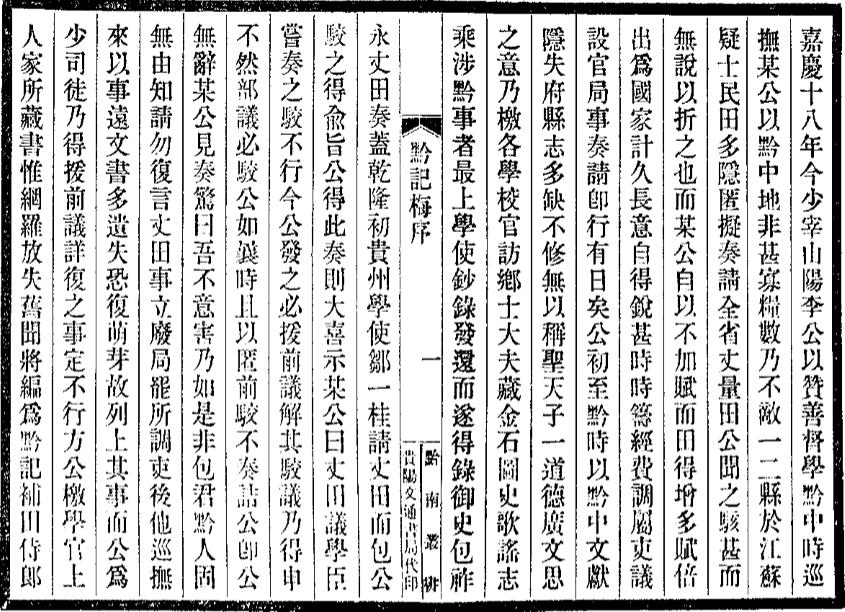 嘉慶十八年今少宰山陽李公以贊善督學黔中時巡
撫某公以黔中地非甚寡糧數乃不敵一二縣於江蘇
疑士民田多隱匿擬奏請全省丈量田公聞之駭甚而
無說以折之也而某公自以不加賦而田得增多賦倍
出爲國家計久長意自得銳甚時時籌經費調屬吏議
設官局事奏請卽行有日矣公初至黔時以黔中文獻
隱失府縣志多缺不修無以稱聖天子一道德廣文思
之意乃檄各學校官訪鄉士大夫藏金石圖史歌謠志
乘涉黔事者最上學使鈔錄發還而遂得錄御史包祚
黔記梅序
一
黔南叢書
貴陽文通書局代印
永丈田奏蓋乾隆初貴州學使鄒一桂請丈田而包公
駮之得兪旨公得此奏則大喜示某公曰丈田議學臣
嘗奏之駮不行今公發之必援前議解其駮議乃得申
不然部議必駮公如曩時且以匿前駮不奏詰公卽公
無辭某公見奏驚曰吾不意害乃如是非包君黔人固
無由知請勿復言丈田事立廢局罷所調吏後他巡撫
來以事遠文書多遺失恐復萌芽故列上其事而公爲
少司徒乃得援前議詳復之事定不行方公檄學官上
人家所藏書惟網羅放失舊聞將編爲黔記補田侍郎